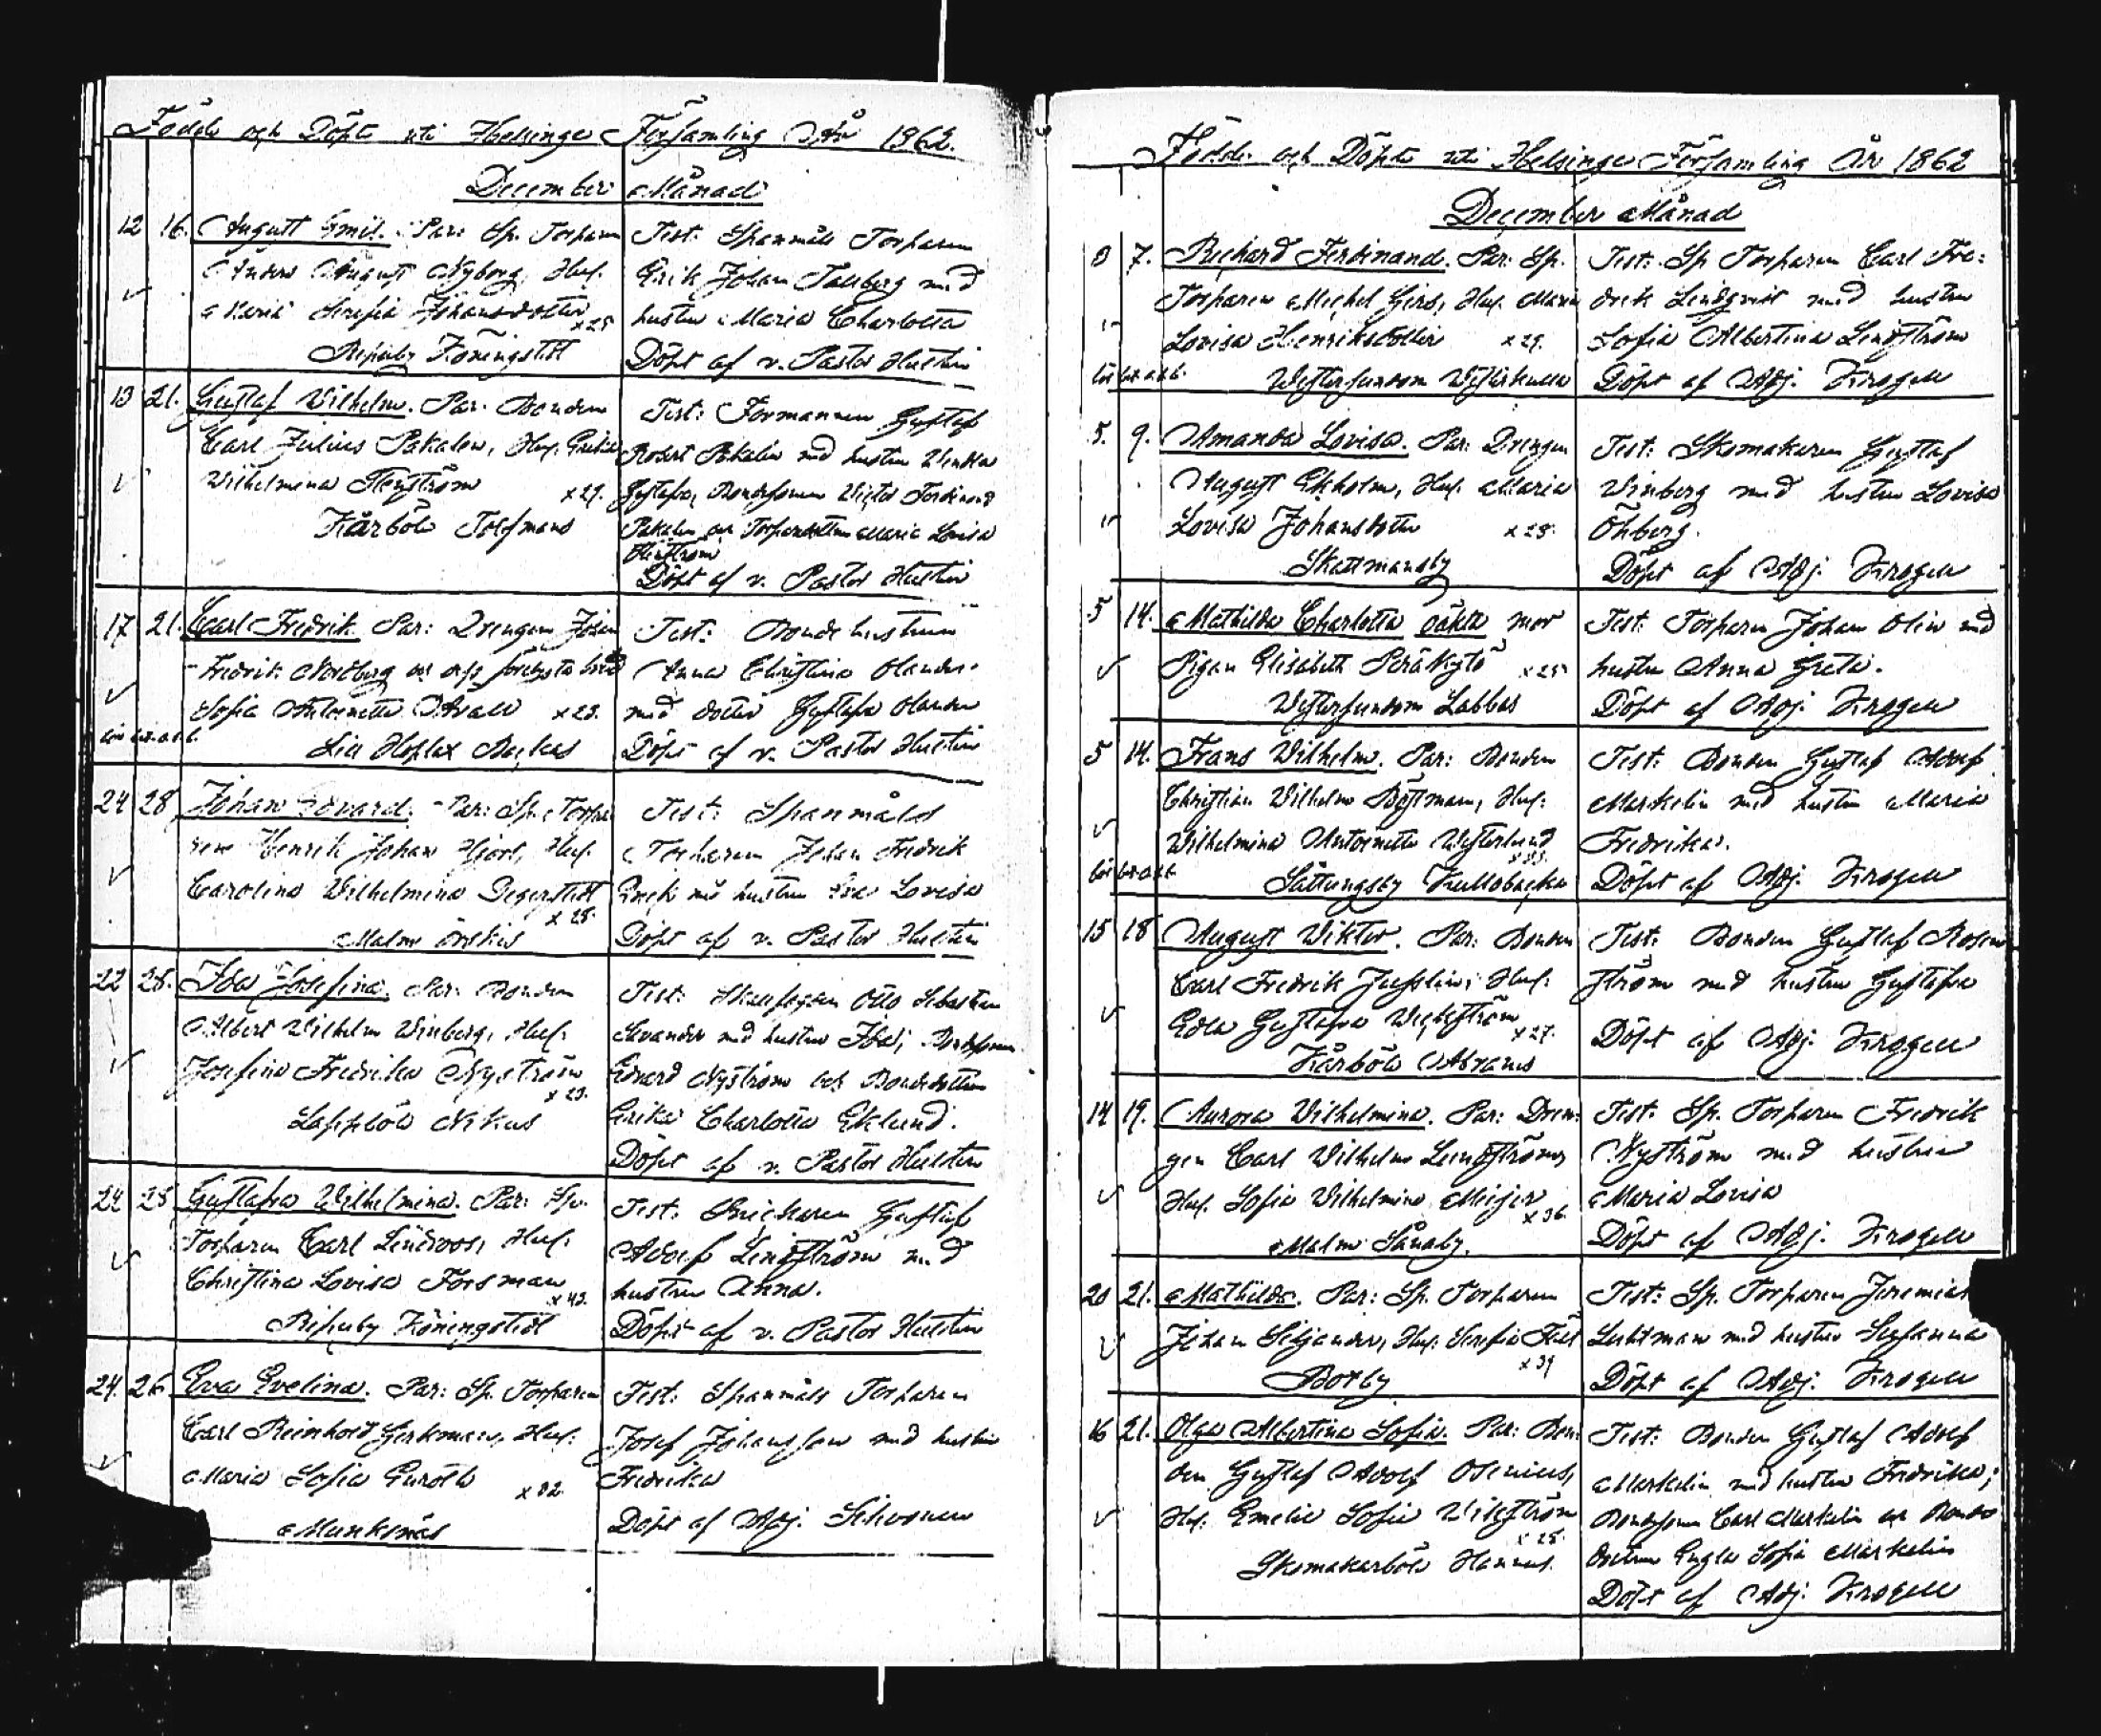 Födde och Döpte uti Helsinge Församling År 1862.
December Månad
12 16. August Emil. Par: Sp. Torparen
Anders August Nyborg, Hus.
Maria Serafia Johansdotter
x 25
Ripuby Köningstedt
Test: Spanmåls Torparen
Erik Johan Tallberg med
hustru Maria Charlotta
Döpt af v. Pastor Hultin
13 21. Gustaf Wilhelm. Par. Bonden
Carl Julius Pakalen, Hus.
Wilhelmina Stenström x 29.
Kårböle Tolfmans
Test: Formannen Gustaf
Robert Pakalen med hustru
Gustafva, Bondesonen Victor Ferdinand
Pakalen och Torparedottren Maria Lovisa
Döpt af v. Pastor Hultin
17 21. Carl Fredrik. Par: Drengen Johan
Fredrik Nordberg och dess
Sofia Antoinetta x 23.
Lill Hoplax Backas
Test: Bonde hustrun
Anna Christina Olander
med dotter Gustafva Olander
Döpt af v. Pastor Hultin
24 28 Johan Edvard. Par: Sp. Torpa
ren Henrik Johan Hjort, Hus.
Carolina Wilhelmina Degerstedt
x 28.
Malm Örskis
Test: Spanmåls
Torparen Johan Fredrik
med hustru Eva Lovisa
Döpt af v. Pastor Hultin
22 28. Ida Josefina. Par: Bonden
Albert Wilhelm Winberg, Hus.
Josefina Fredrika Nyström
x 23.
Lappböle Nikus
Test: Otto Sebastian
med hustru Ida; Bondesonen
Edvard Nyström och Bondedottren
Erika Charlotta Eklund.
Döpt af v. Pastor Hultin
24 28 Gustafva Wilhelmina. Par: Sp.
Torparen Carl Lindroos, Hus.
Christina Lovisa Forsman
x 43.
Ripuby Köningstedt
Test: Snickaren Gustaf
Adolf Lindström med
hustru Anna.
Döpt af v. Pastor Hultin
24. 26. Eva Evelina. Par: Sp. Torparen
Carl Reinhold Gerkman, Hus.
Maria Sofia Enroth x 32.
Munksnäs
Test: Spanmåls Torparen
Josef Johansson med hustru
Fredrika
Döpt af Adj. Sihvonen
Födde och Döpte uti Helsinge Församling År 1862
December Månad
3 7. Richard Ferdinand. Par: Sp.
Torparen Michel Girs, Hus. Maria
Lovisa Henriksdotter x 29.
Westersundom Westerkulla
Test: Sp Torparen Carl Fre:
drik Lindqvist med hustru
Sofia Albertina Lindström
Döpt af Adj. Krogell
5. 9. Amanda Lovisa. Par: Drengen
August Ekholm, Hus. Maria
Lovisa Johansdotter x 28.
Skattmansby
Test: Skomakaren Gustaf
Winberg med hustru Lovisa
Öhberg.
Döpt af Adj. Krogell
5 14. Mathilda Charlotta oäkta mor
Pigan Elisabeth x 25
Westersundom Labbas
Test: Torparen Johan Olin med
hustru Anna Greta.
Döpt af Adj. Krogell
5 14. Frans Wilhelm. Par: Bonden
Christian Wilhelm Böstman, Hus:
Wilhelmina Antoinetta Westerlund
x 33.
Sottungsby Kullobacka
Test: Bonden Gustaf Adolf
Markelin med hustru Maria
Fredrika.
Döpt af Adj. Krogell
15 18 August Wiktor. Par: Bonden
Carl Fredrik Jusslin, Hus.
Edla Gustafva Wickström
x 27.
Kårböle Abrams
Test: Bonden Gustaf Rosen
ström med hustru Gustafva
Döpt af Adj. Krogell
14 19. Aurora Wilhelmina. Par: Dren:
gen Carl Wilhelm Lundström,
Hus. Sofia Wilhelmina Meijer
x 36
Malm Sånaby.
Test: Sp. Torparen Fredrik
Nyström med hustru
Maria Lovisa
Döpt af Adj. Krogell
20 21. Mathilda. Par: Sp. Torparen
Johan Siljander, Hus. Serafia
x 39
Botby
Test: Sp. Torparen Jeremias
Lustman med hustru Susanna
Döpt af Adj. Krogell
16 21. Olga Albertina Sofia. Par: Bon:
den Gustaf Adolf Osenius,
Hus. Emelie Sofie Wikström
x 28.
Skomakarböle Hannus.
Test: Bonden Gustaf Adolf
Markelin med hustru Fredrika;
Bondesonen Carl Markelin och Bonde
dottren Engla Sofia Markelin
Döpt af Adj. Krogell